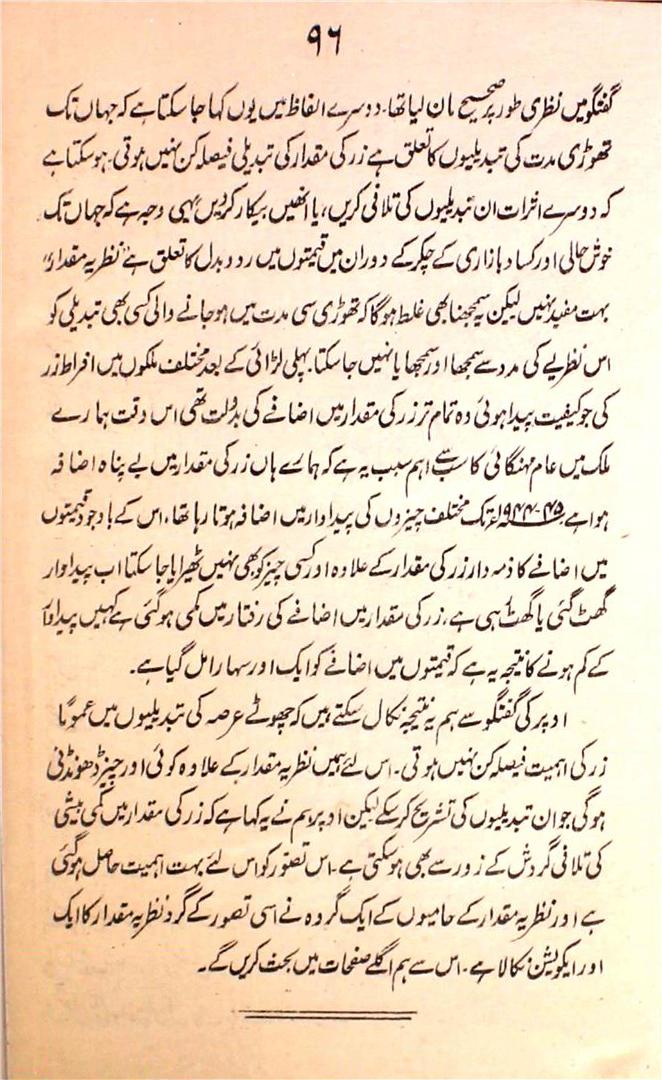 ۹۶
گفتگو میں نظری طور پر صحیح مان لیا تھا۔ دوسرے الفاظ میں یوں کہا جا سکتا ہے کہ جہاں تک
تھوڑی مدت کی تبدیلیوں کا تعلق ہے زر کی مقدار کی تبدیلی فیصلہ کن نہیں ہوتی۔ ہو سکتا ہے
کہ دوسرے اثرات ان تبدیلیوں کی تلافی کریں، یا انھیں بیکار کر دیں یہی وجہ ہے کہ جہاں تک
خوش حالی اور کساد بازاری کے چکر کے دوران میں قیمتوں میں ردوبدل کا تعلق ہے "نظریہ مقدار"
بہت مفید نہیں لیکن یہ سمجھنا بھی غلط ہوگا کہ تھوڑی سی مدت میں ہو جانے والی کسی بھی تبدیلی کو
اس نظریے کی مدد سے سمجھا اور سمجھایا نہیں جا سکتا۔ پہلی لڑائی کے بعد مختلف ملکوں میں افراط زر
کی جو کیفیت پیدا ہوئی وہ تمام تر زر کی مقدار میں اضافے کی بدولت تھی اس وقت ہمارے
ملک میں عام مہنگائی کا سب سے اہم سبب یہ ہے کہ ہمارے ہاں زر کی مقدار میں بے پناہ اضافہ
ہوا ہے ۴۵-۱۹۴۴ء تک مختلف چیزوں کی پیداوار میں اضافہ ہوتا رہا تھا، اس کے باوجود قیمتوں
میں اضافے کا ذمہ دار زر کی مقدار کے علاوہ اور کسی چیز کو بھی نہیں ٹھیرایا جا سکتا اب پیداوار
گھٹ گئی یا گھٹ رہی ہے، زر کی مقدار میں اضافے کی رفتار میں کمی ہو گئی ہے کہیں پیداوار
کے کم ہونے کا نتیجہ یہ ہے کہ قیمتوں میں اضافے کو ایک اور سہارا مل گیا ہے۔
اوپر کی گفتگو سے ہم یہ نتیجہ نکال سکتے ہیں کہ چھوٹے عرصہ کی تبدیلیوں میں عموماً
زر کی اہمیت فیصلہ کن نہیں ہوتی۔ اس لئے ہمیں نظریہ مقدار کے علاوہ کوئی اور چیز ڈھونڈنی
ہوگی جو ان تبدیلیوں کی تشریح کر سکے لیکن اوپر ہم نے یہ کہا ہے کہ زر کی مقدار میں کمی بیشی
کی تلافی گردش کے زور سے بھی ہو سکتی ہے۔ اس تصور کو اس لئے بہت اہمیت حاصل ہو گئی
ہے اور نظریہ مقدار کے حامیوں کے ایک گروہ نے اسی تصور کے گرد نظریہ مقدار کا ایک
اور ایکویشن نکالا ہے۔ اس سے ہم اگلے صفحات میں بحث کریں گے۔